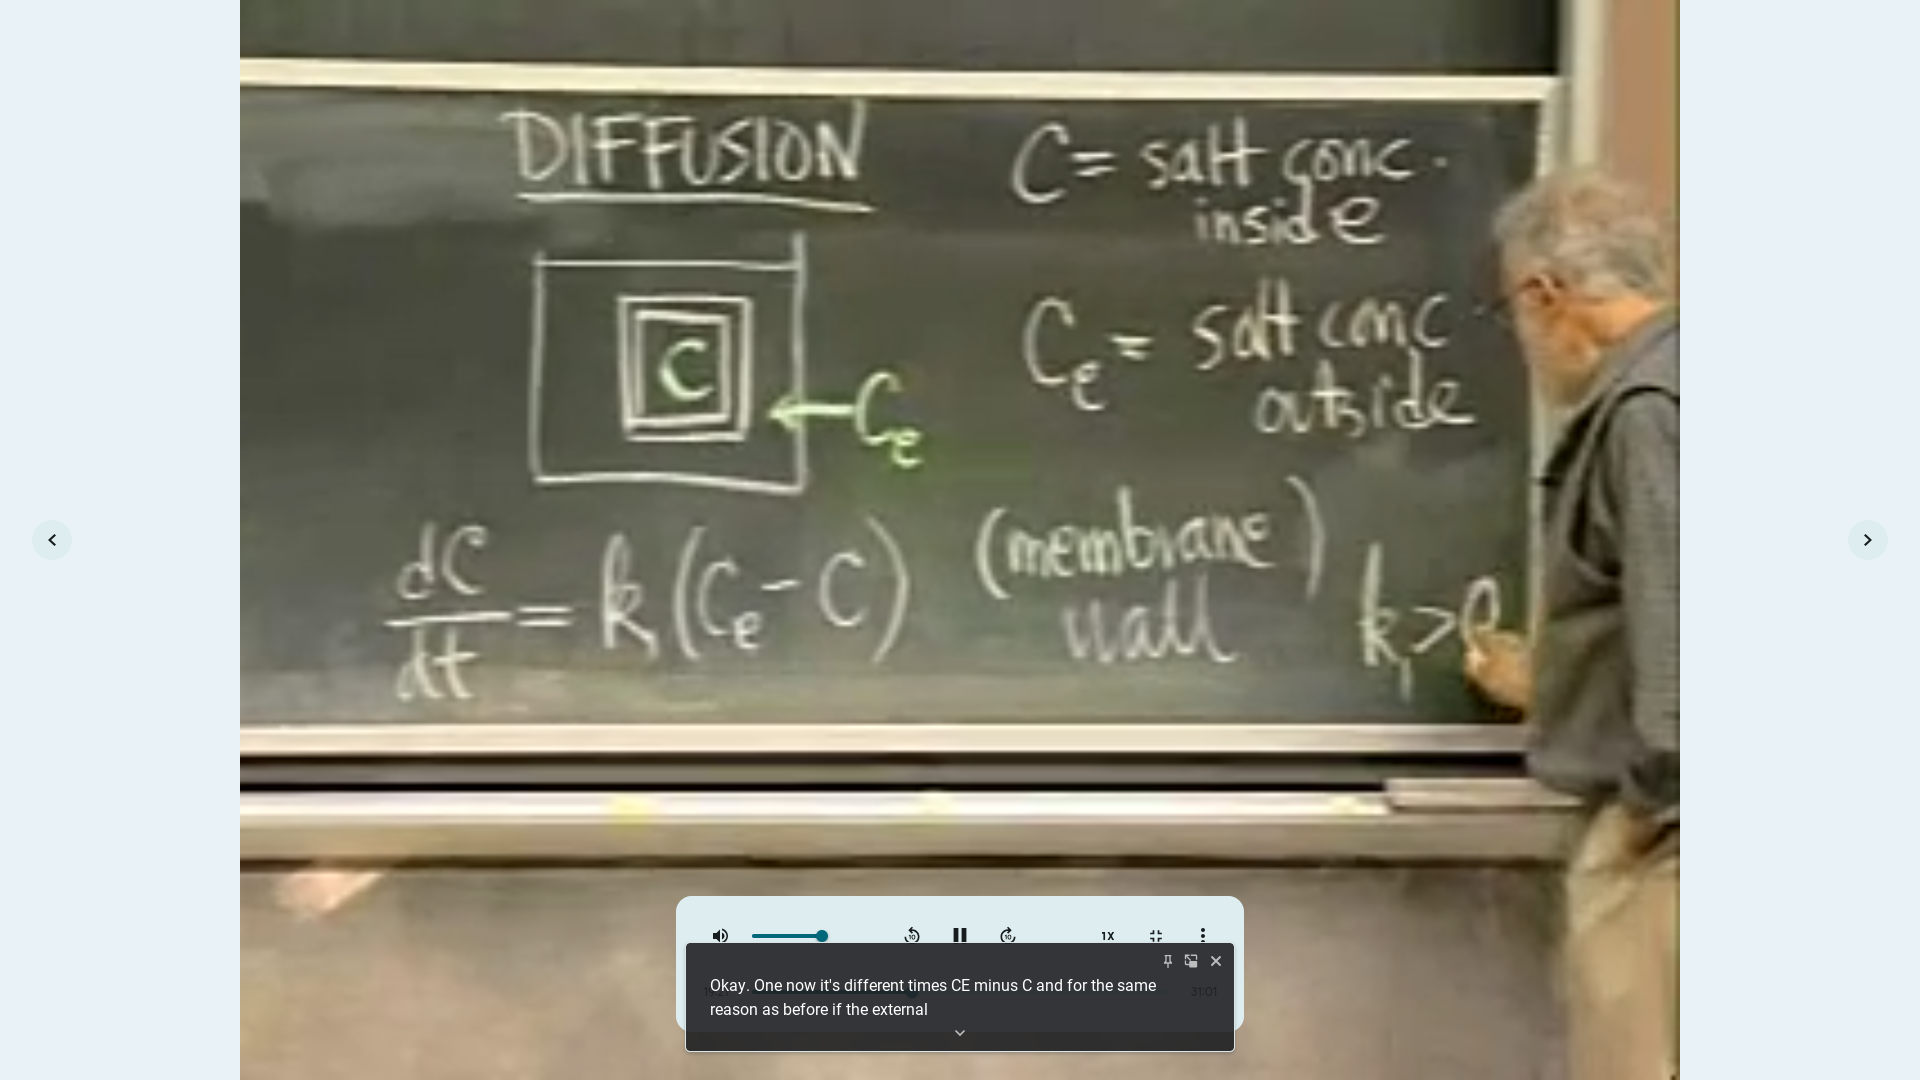 DIFFUSION
C = salt conc.
inside
C
Ce
Ce = salt conc
outside
dC/dt = k₁(Ce - C)
(membrane)
wall
k₁ > 0
1X
Okay. One now it's different times CE minus C and for the same
reason as before if the external